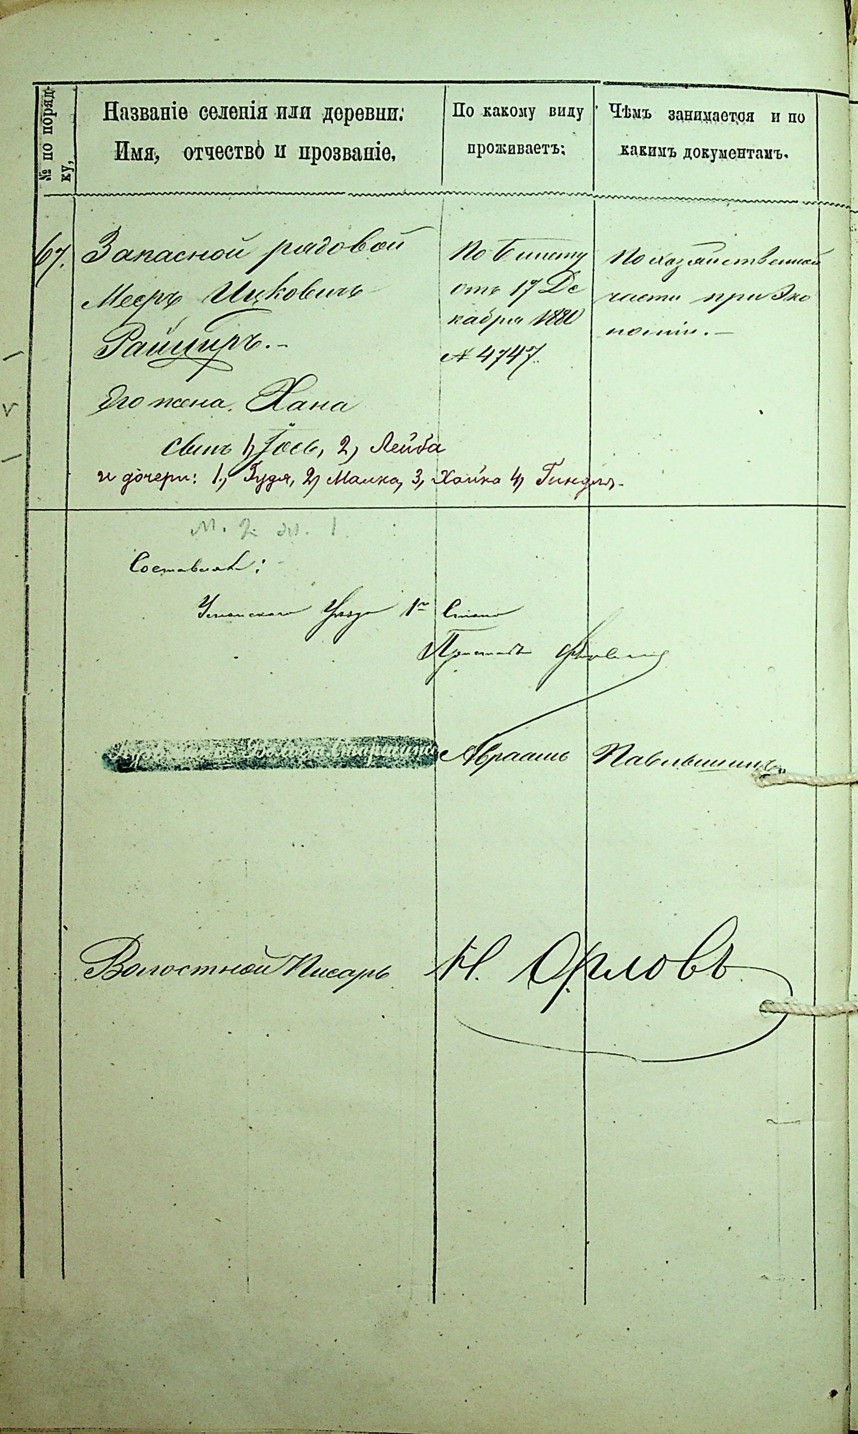 № по поряд-
ку,
Названіе селенія или деревни:
Имя, отчество и прозваніе,
По какому виду
проживаетъ:
Чѣмъ занимается и по
какимъ документамъ.
67.
Запасной рядовой
Мееръ Ицковичъ
Его жена. Хана
сынъ 1, Іось, 2, Лейба
и дочери: 1, Гудя, 2, Малка, 3, Хайка 4, Гиндля.
По билету
отъ 17 Де
кабря 1880
№ 4747.
По хозяйственной
части при Эко
номіи. —
М. 2. ж. 1
Составилъ:
Уманскаго Уѣзда 1го Стана
Приставъ
Волост. Старшина Авраамъ
Волостной Писарь Н. Орловъ